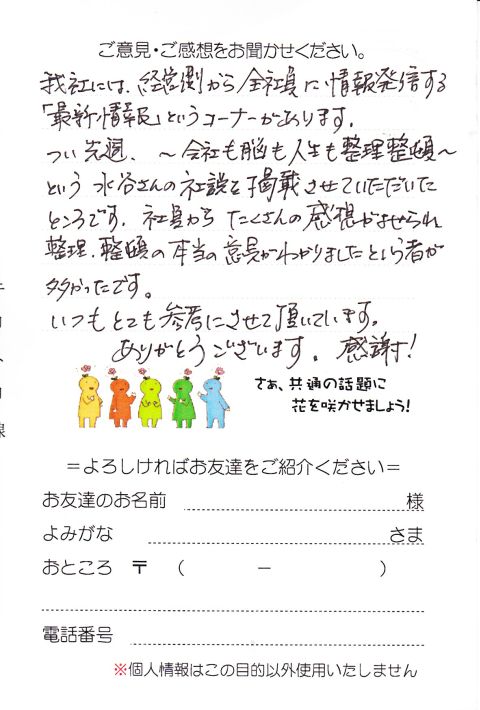 ご意見・ご感想をお聞かせください。
我社には、経営側から全社員に情報発信する
「最新情報」というコーナーがあります。
つい先週、～会社も脳も人生も整理整頓～
という水谷さんの社説を掲載させていただいた
ところです。社員からたくさんの感想がよせられ
整理、整頓の本当の意味がわかりましたという者が
多かったです。
いつもとても参考にさせて頂いています。
ありがとうございます。感謝!
さぁ、共通の話題に
花を咲かせましょう!
＝よろしければお友達をご紹介ください＝
お友達のお名前 様
よみがな さま
おところ 〒 （ － ）
電話番号
※個人情報はこの目的以外使用いたしません